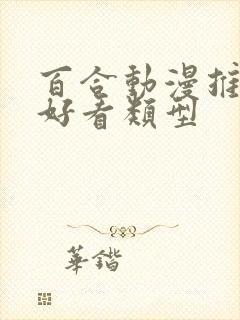 百合動漫推
好看類型
華鍇